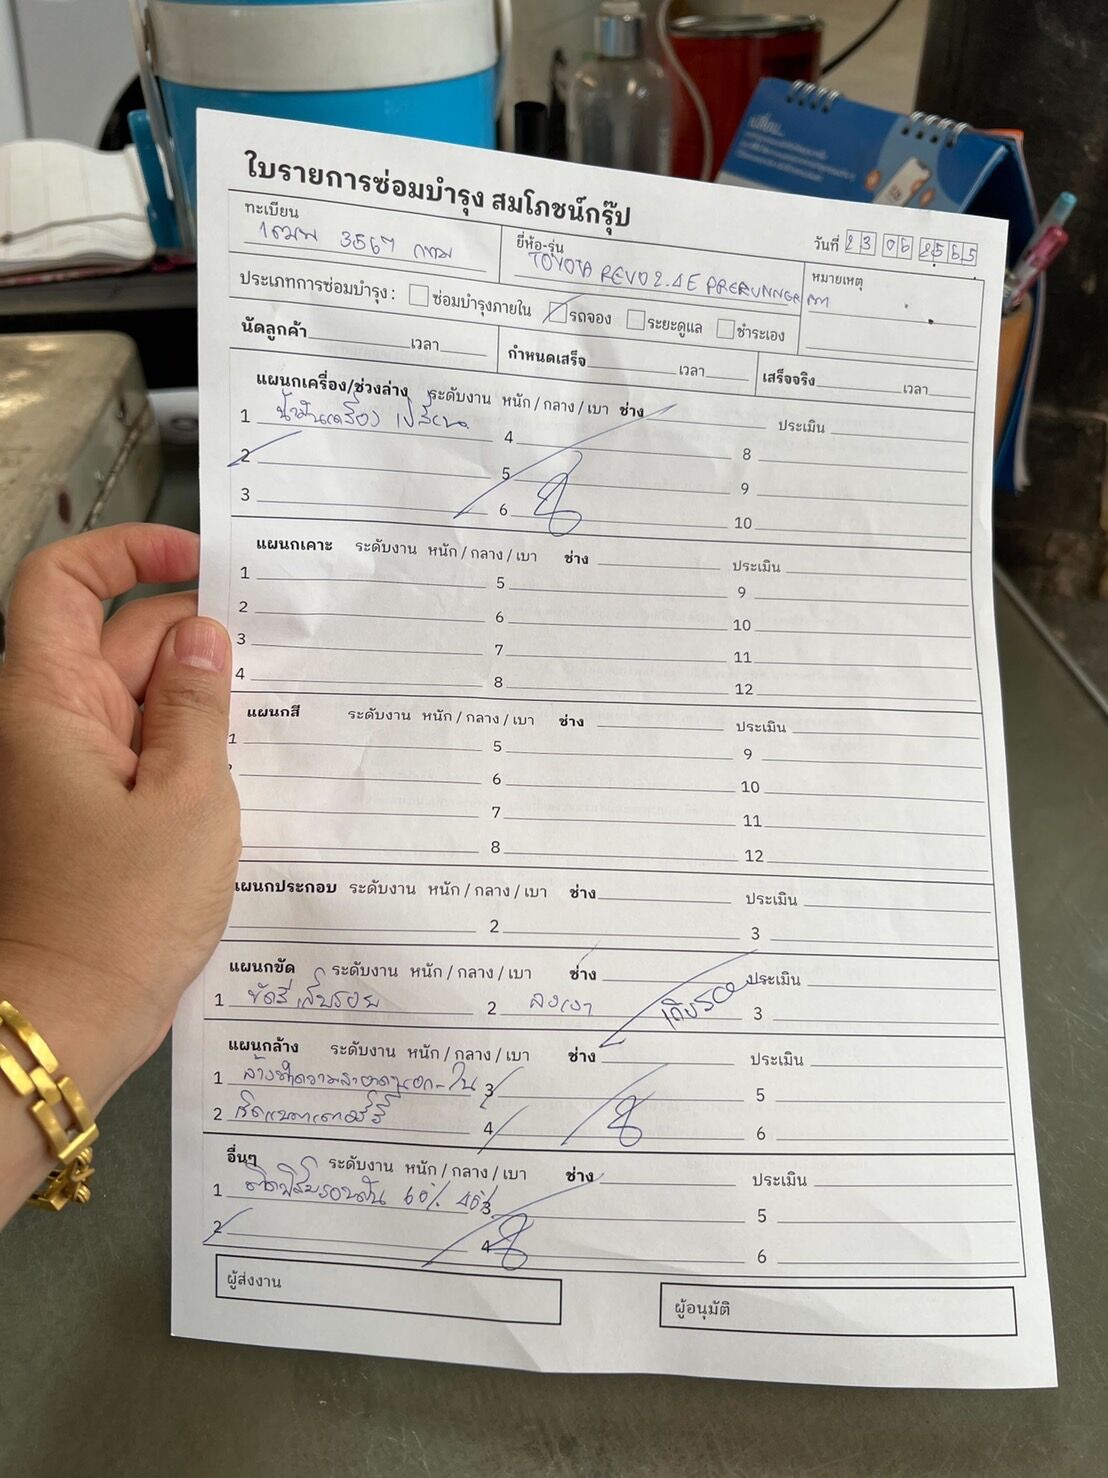 ใบรายการซ่อมบำรุง สมโภชน์กรุ๊ป
วันที่ 23 06 2565
ทะเบียน 3567 กทม
ยี่ห้อ-รุ่น TOYOTA REVO 2.4E PRERUNNER
หมายเหตุ
ประเภทการซ่อมบำรุง : ซ่อมบำรุงภายใน รถจอง ระยะดูแล ชำระเอง
นัดลูกค้า เวลา กำหนดเสร็จ เวลา เสร็จจริง เวลา
แผนกเครื่อง/ช่วงล่าง ระดับงาน หนัก / กลาง / เบา ช่าง ประเมิน
1 น้ำมันเครื่อง 4 8
2 5 9
3 6 10
แผนกเคาะ ระดับงาน หนัก / กลาง / เบา ช่าง ประเมิน
1 5 9
2 6 10
3 7 11
4 8 12
แผนกสี ระดับงาน หนัก / กลาง / เบา ช่าง ประเมิน
1 5 9
6 10
7 11
8 12
แผนกประกอบ ระดับงาน หนัก / กลาง / เบา ช่าง ประเมิน
2 3
แผนกขัด ระดับงาน หนัก / กลาง / เบา ช่าง ประเมิน
1 ขัดสี เก็บรอย 2 ลงเงา 3
แผนกล้าง ระดับงาน หนัก / กลาง / เบา ช่าง ประเมิน
1 ล้างทำความสะอาดนอก-ใน 3 5
2 4 6
อื่นๆ ระดับงาน หนัก / กลาง / เบา ช่าง ประเมิน
1 ติดฟิล์มรอบคัน 60% 3 5
2 4 6
ผู้ส่งงาน
ผู้อนุมัติ